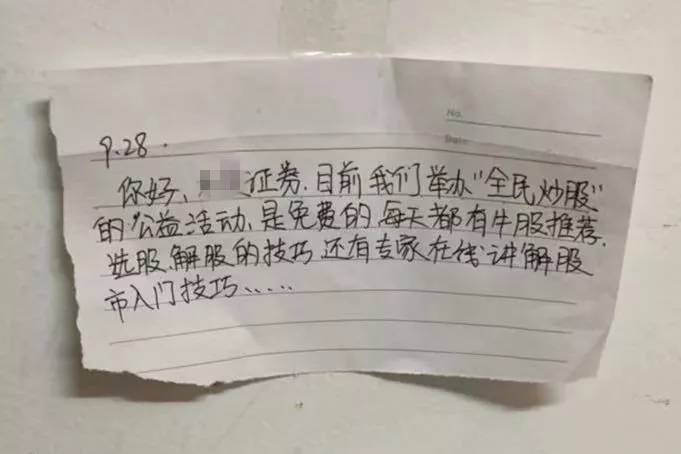 No.
Date.
9.28.
你好、证券.目前我们举办"全民炒股"
的公益活动、是免费的、每天都有牛股推荐.
选股、解股的技巧还有专家在线讲解股
市入门技巧......